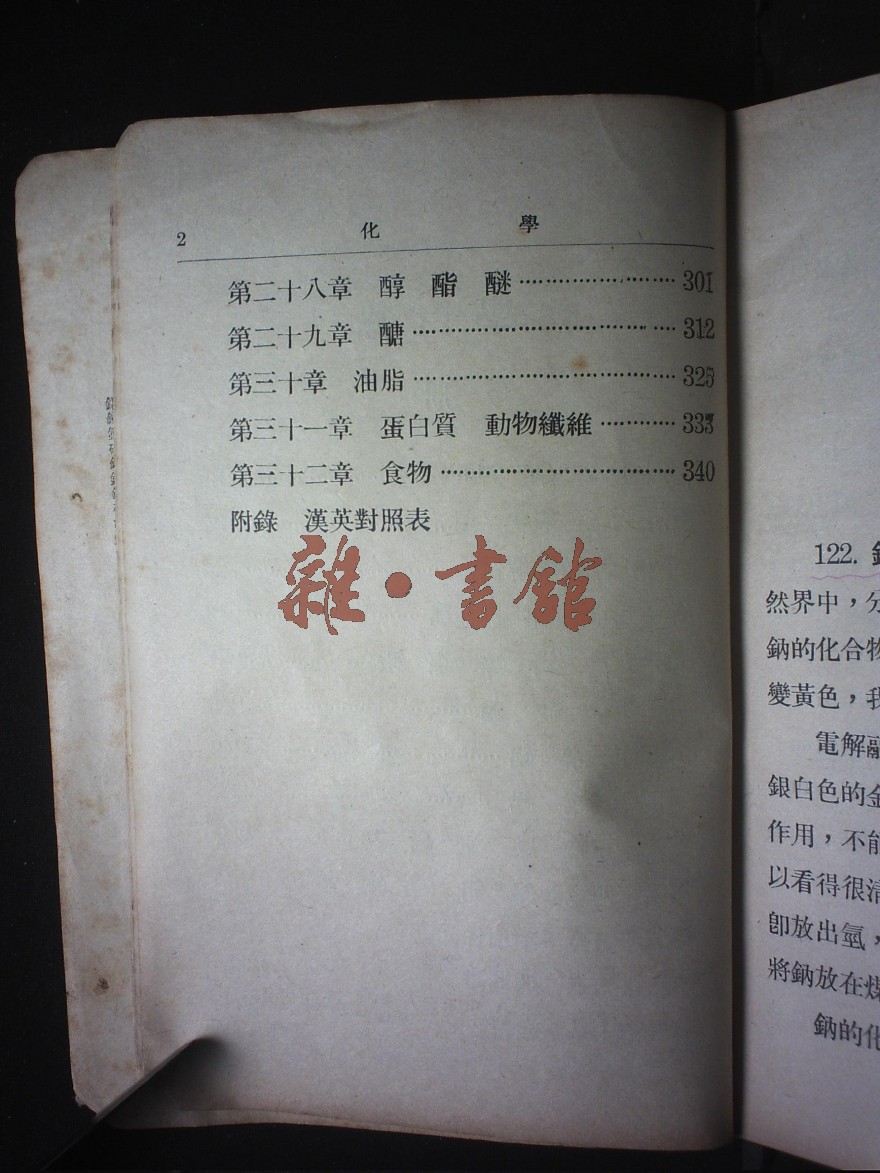 2 化學
第二十八章 醇 酯 醚……………………301
第二十九章 醣…………………………………312
第三十章 油脂…………………………………325
第三十一章 蛋白質 動物纖維…………333
第三十二章 食物………………………………340
附錄 漢英對照表
雜·書館
122.
然界中，分
鈉的化合物
變黃色，我
電解融
銀白色的金
作用，不能
以看得很清
卽放出氫，
將鈉放在煤
鈉的化